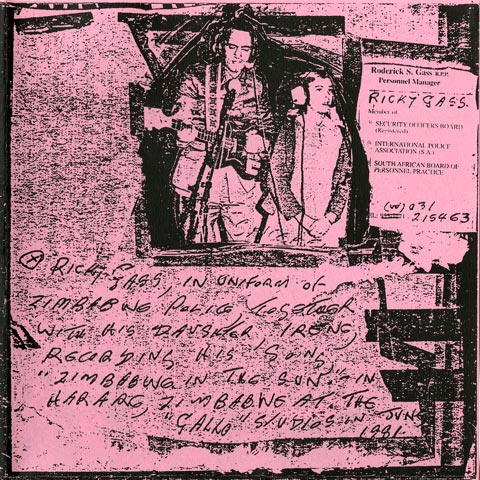 Roderick S. Gass B.P.P.
Personnel Manager
RICKY GASS.
Member of
SECURITY OFFICERS BOARD
(Registered)
INTERNATIONAL POLICE
ASSOCIATION (S.A.)
SOUTH AFRICAN BOARD OF
PERSONNEL PRACTICE
(W) 031
215463
RICKY GASS, IN UNIFORM OF
ZIMBABWE POLICE, TOGETHER
WITH HIS DAUGHTER IRENE,
RECORDING HIS SONG,
"ZIMBABWE IN THE SUN." IN
HARARE, ZIMBABWE AT THE
"GALLO" STUDIOS IN JUNE
1981